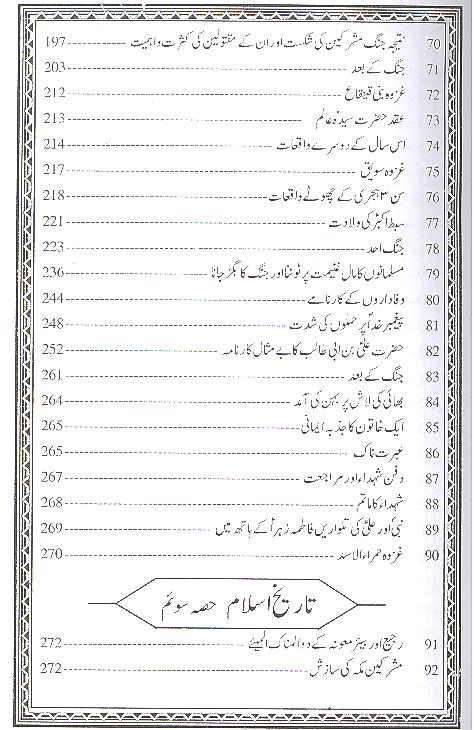 70 نتیجہ جنگ مشرکین کی شکست اور ان کے مقتولین کی کثرت و اہمیت 197
71 جنگ کے بعد 203
72 غزوہ بنی قینقاع 212
73 عقد حضرت سیدۂ عالم 213
74 اس سال کے دوسرے واقعات 214
75 غزوہ سویق 217
76 سن ۳ ہجری کے چھوٹے واقعات 218
77 سبط اکبرؑ کی ولادت 221
78 جنگ احد 223
79 مسلمانوں کا مال غنیمت پر ٹوٹنا اور جنگ کا بگڑ جانا 236
80 وفاداروں کے کارنامے 244
81 پیغمبر خداؐ پر حملوں کی شدت 248
82 حضرت علیؑ بن ابی طالب کا بے مثال کارنامہ 252
83 جنگ کے بعد 261
84 بھائی کی لاش پر بہن کی آمد 264
85 ایک خاتون کا جذبہ ایمانی 265
86 عبرت ناک 265
87 دفن شہداء اور مراجعت 267
88 شہداء کا ماتم 268
89 نبیؐ اور علیؑ کی تلواریں فاطمہ زہراؑ کے ہاتھ میں 269
90 غزوہ حمراء الاسد 270
تاریخ اسلام حصہ سوئم
91 رجیع اور بیئر معونہ کے دو المناک المیئے 272
92 مشرکین مکہ کی سازش 272